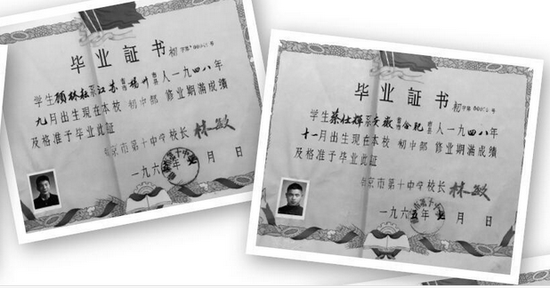 毕业証书
初
学生顾林松系江苏省扬州县人一九四八年
九月出生现在本校初中部修业期满成绩
及格准予毕业此证
南京市第十中学校长林敏
一九六五年 月 日
毕业証书
初
学生蔡仕辉系安徽省合肥县人一九四八年
十一月出生现在本校初中部修业期满成绩
及格准予毕业此证
南京市第十中学校长林敏
一九六五年 月 日